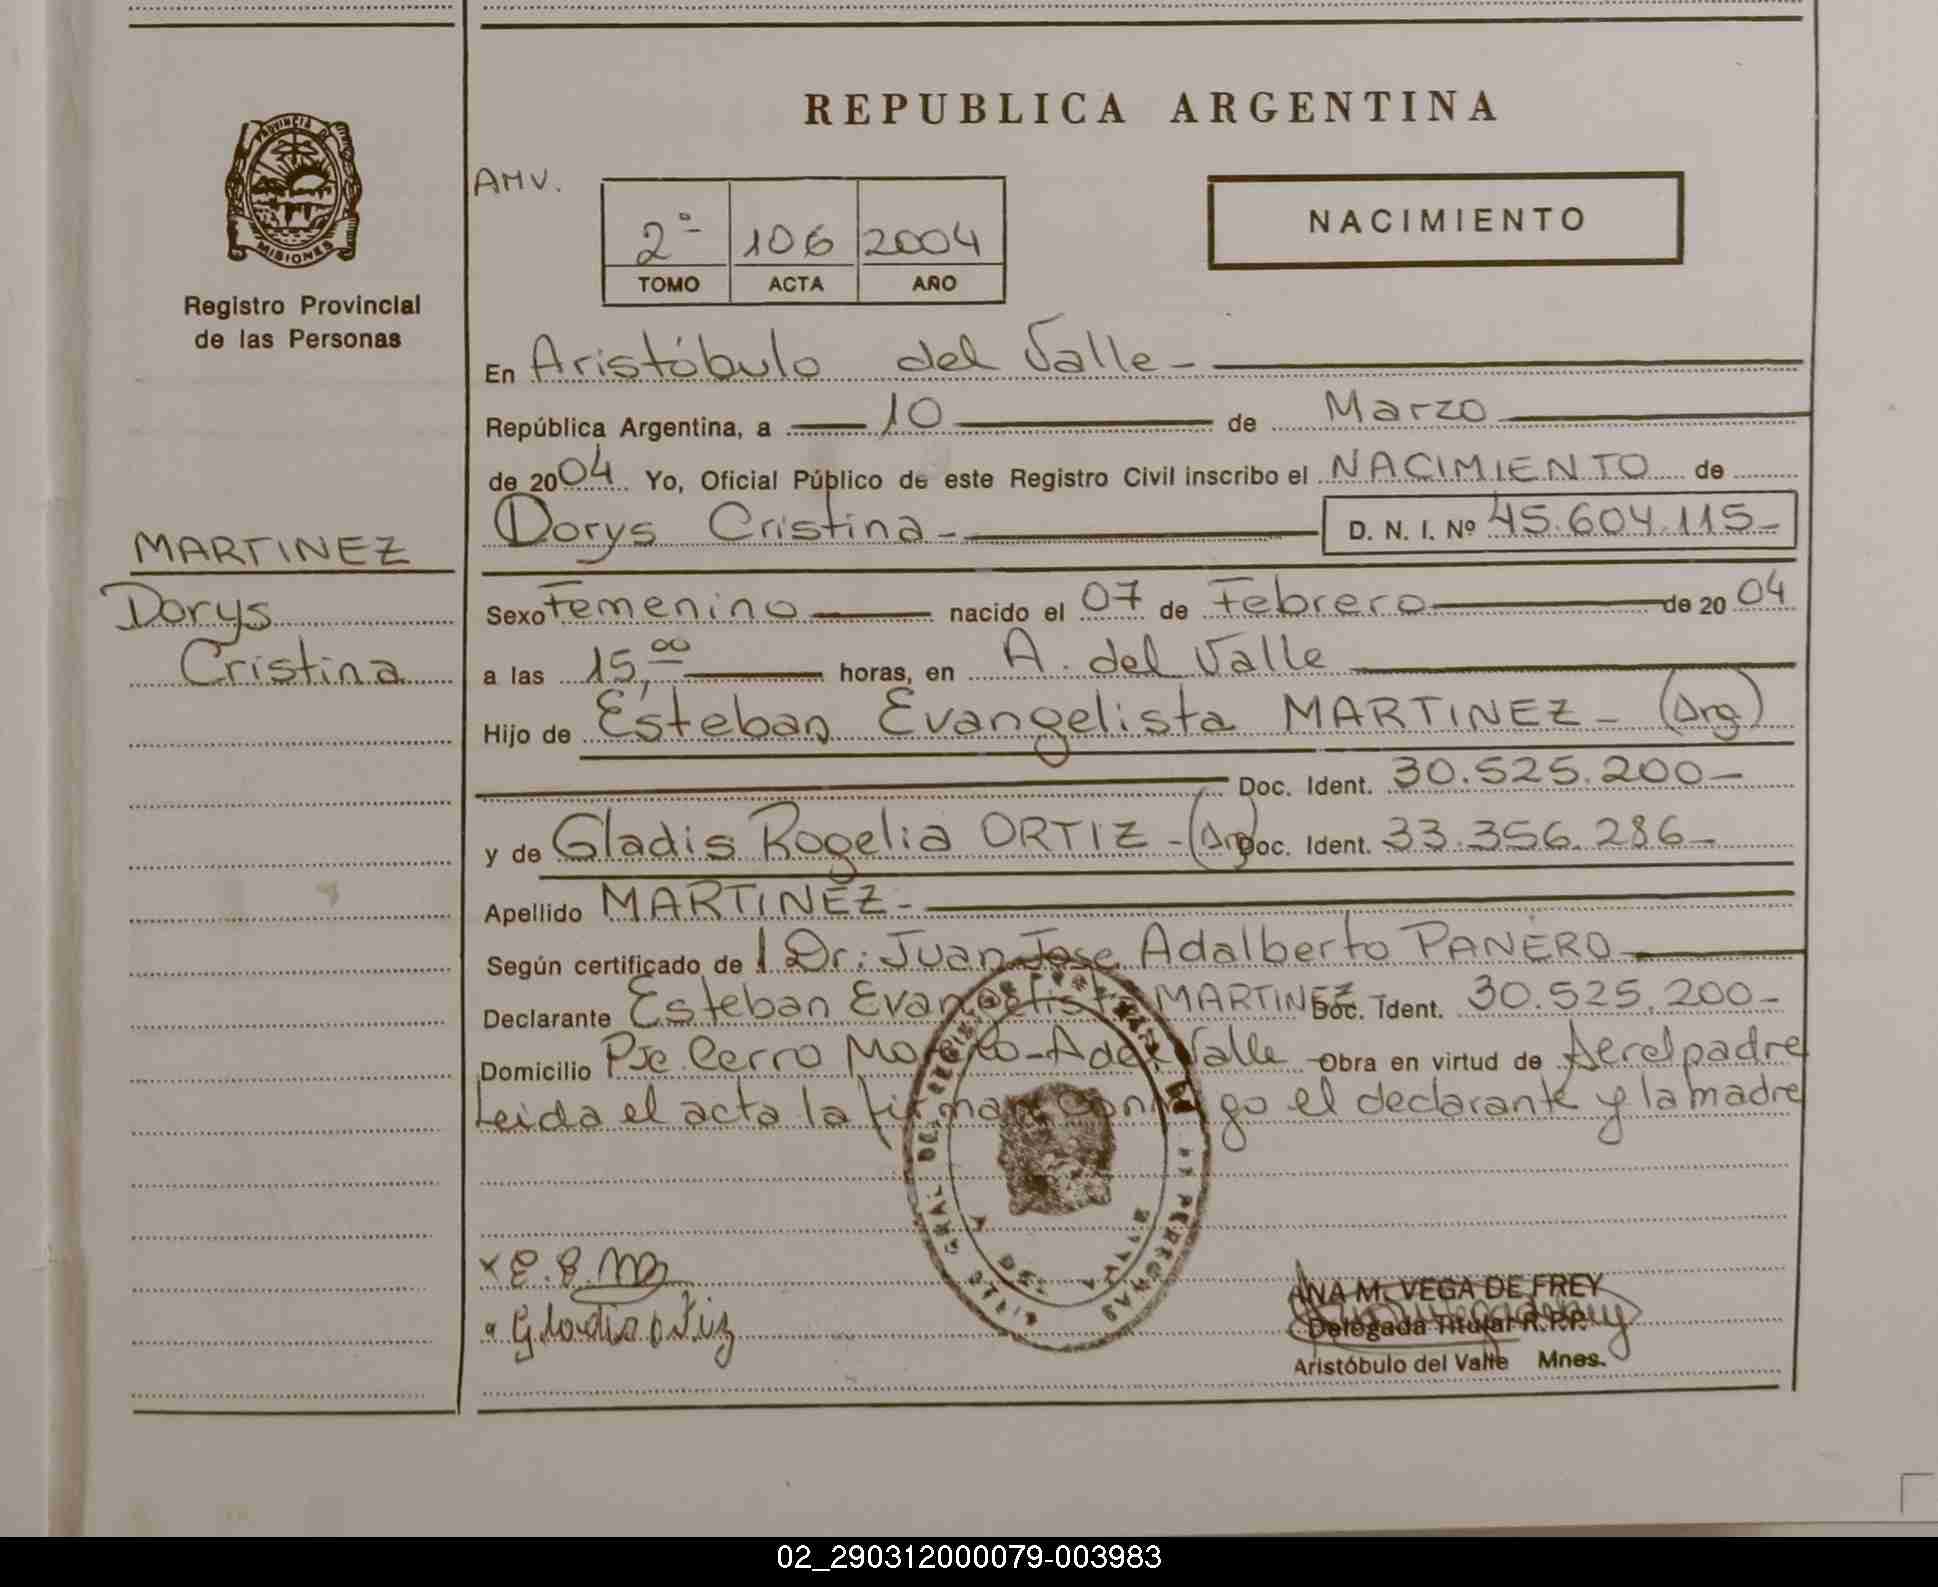 REPUBLICA ARGENTINA
PROVINCIA D
MISIONES
Registro Provincial
de las Personas
AMV.
2º 106 2004
TOMO ACTA AÑO
NACIMIENTO
En Aristóbulo del Valle -
República Argentina, a 10 de Marzo
de 2004 Yo, Oficial Público de este Registro Civil inscribo el NACIMIENTO de
Dorys Cristina - D. N. I. Nº 45.604.115-
MARTINEZ
Dorys
Cristina
Sexo Femenino nacido el 07 de Febrero de 2004
a las 15,00 horas, en A. del Valle
Hijo de Esteban Evangelista MARTINEZ - (Arg)
Doc. Ident. 30.525.200-
y de Gladis Rogelia ORTIZ - (Arg) Doc. Ident. 33.356.286-
Apellido MARTINEZ -
Según certificado de Dr: Juan Jose Adalberto PANERO
Declarante Esteban Evangelista MARTINEZ - Doc. Ident. 30.525.200-
Domicilio Pje Cerro - A del Valle - Obra en virtud de ser el padre
Leida el acta la firman conmigo el declarante y la madre
x E. E. M
Gladis ortiz
ANA M. VEGA DE FREY
Delegada Titular R.P.P.
Aristóbulo del Valle Mnes.
02_290312000079-003983